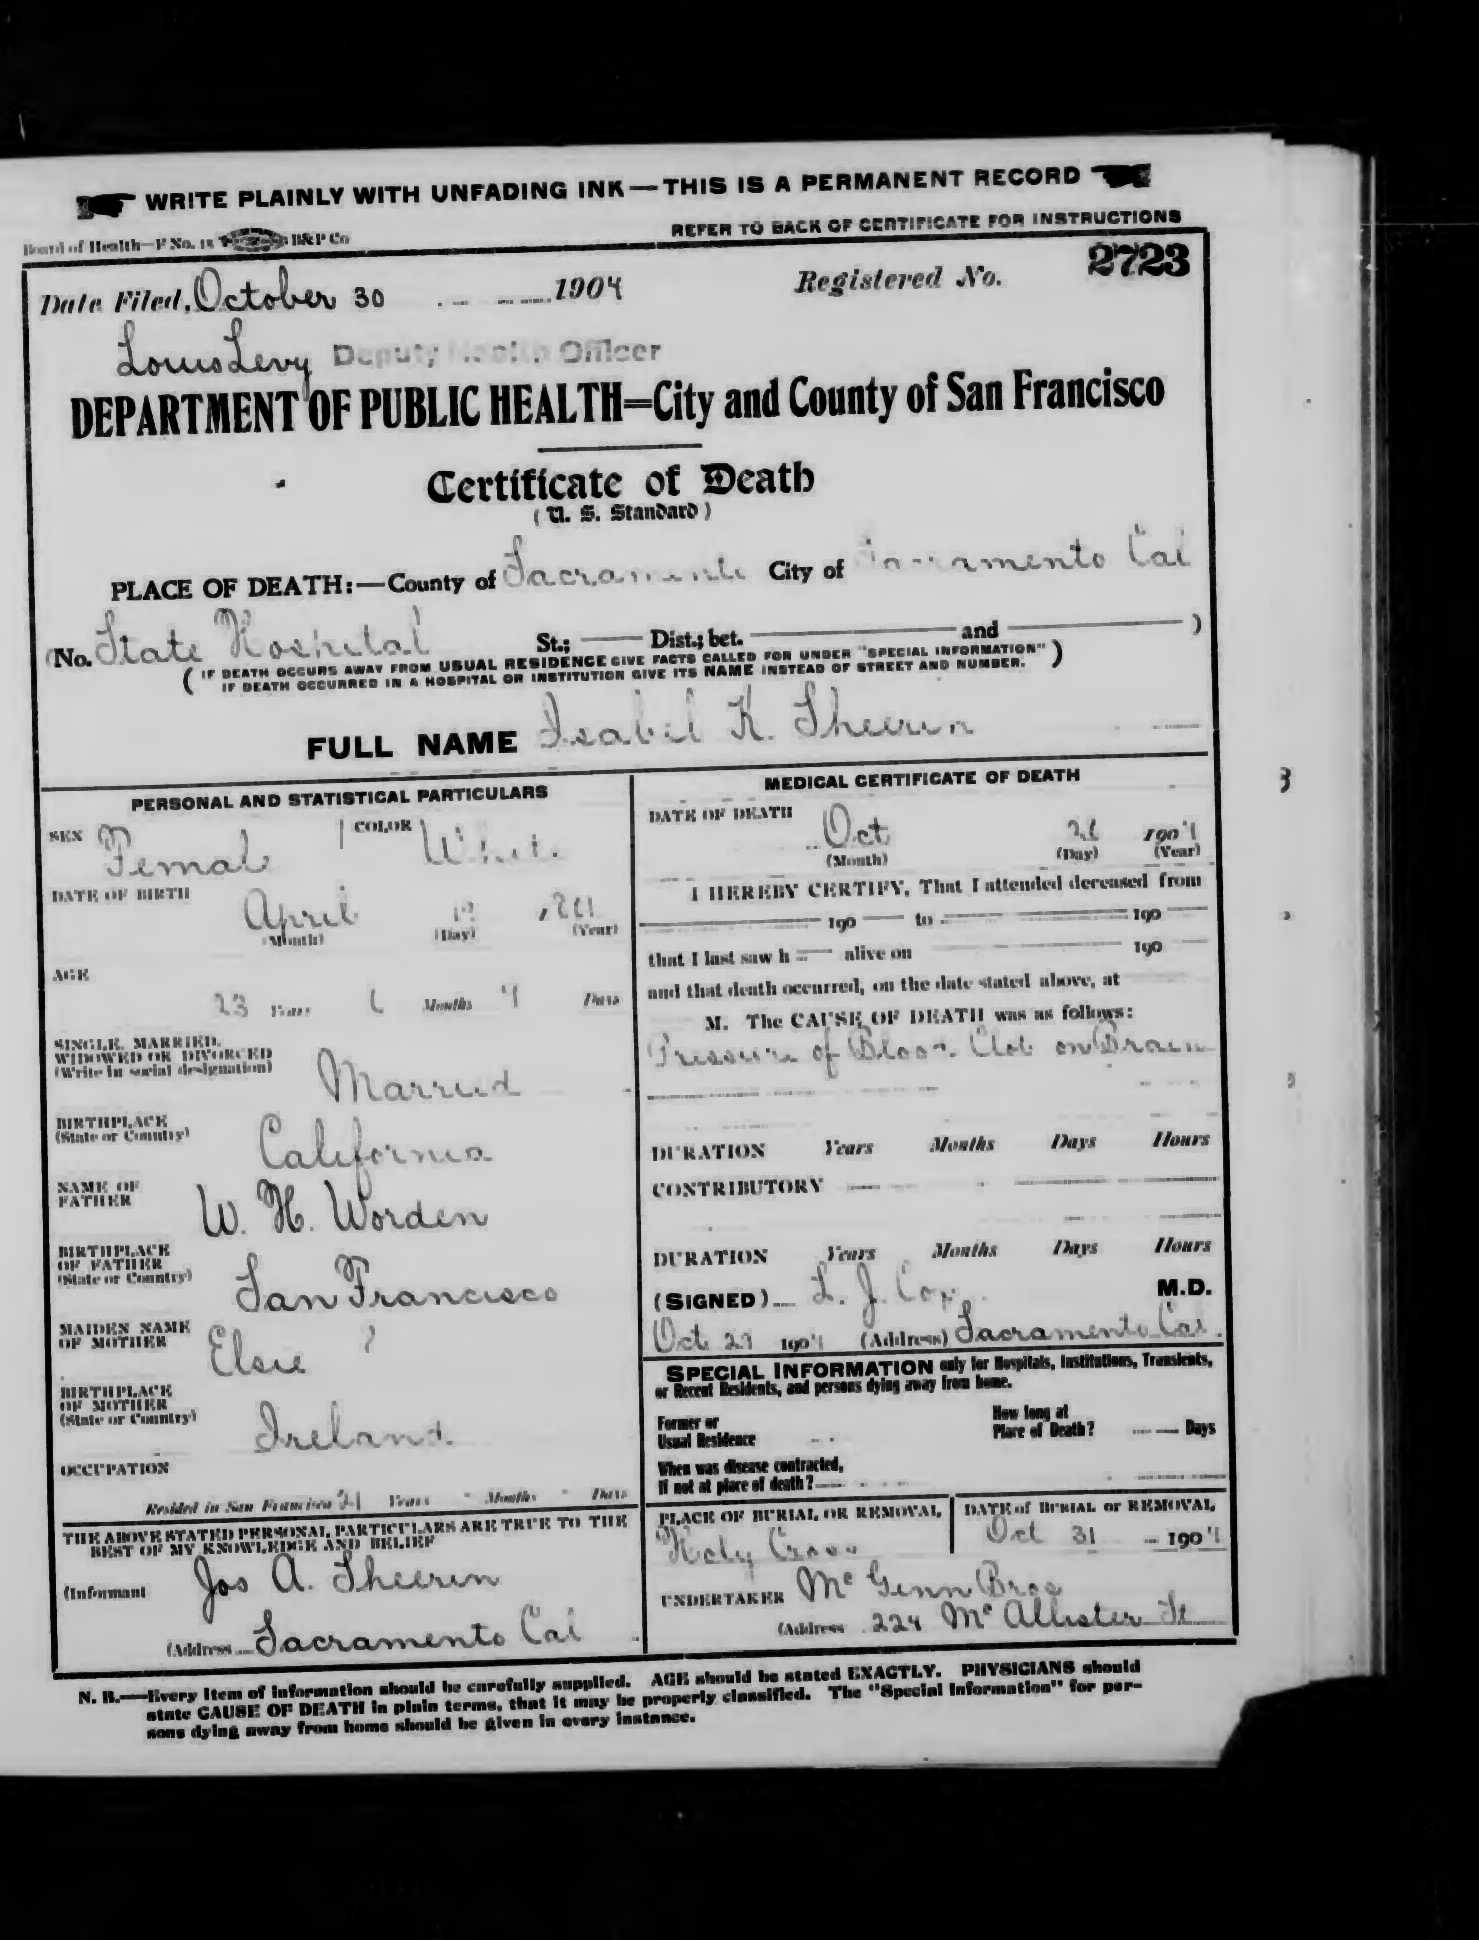 WRITE PLAINLY WITH UNFADING INK—THIS IS A PERMANENT RECORD
Board of Health—F No. 15 B&P Co
REFER TO BACK OF CERTIFICATE FOR INSTRUCTIONS
Date Filed, October 30 1904 Registered No. 2723
Louis Levy Deputy Health Officer
DEPARTMENT OF PUBLIC HEALTH=City and County of San Francisco
Certificate of Death
(U. S. Standard)
PLACE OF DEATH:—County of Sacramento City of Sacramento Cal
(No. State Hospital St.; Dist.; bet. and )
(IF DEATH OCCURS AWAY FROM USUAL RESIDENCE GIVE FACTS CALLED FOR UNDER "SPECIAL INFORMATION"
IF DEATH OCCURRED IN A HOSPITAL OR INSTITUTION GIVE ITS NAME INSTEAD OF STREET AND NUMBER.)
FULL NAME Isabel K. Sheerin
PERSONAL AND STATISTICAL PARTICULARS
SEX Female COLOR White
DATE OF BIRTH April
(Month) (Day) (Year)
AGE
23 Years 6 Months Days
SINGLE, MARRIED,
WIDOWED OR DIVORCED
(Write in social designation) Married
BIRTHPLACE
(State or Country) California
NAME OF
FATHER W. H. Worden
BIRTHPLACE
OF FATHER
(State or Country) San Francisco
MAIDEN NAME
OF MOTHER Elsie ?
BIRTHPLACE
OF MOTHER
(State or Country) Ireland
OCCUPATION
Resided in San Francisco 21 Years Months Days
THE ABOVE STATED PERSONAL PARTICULARS ARE TRUE TO THE
BEST OF MY KNOWLEDGE AND BELIEF
(Informant Jos A. Sheerin
(Address Sacramento Cal
MEDICAL CERTIFICATE OF DEATH
DATE OF DEATH
Oct 1904
(Month) (Day) (Year)
I HEREBY CERTIFY, That I attended deceased from
190 to 190
that I last saw h alive on 190
and that death occurred, on the date stated above, at
M. The CAUSE OF DEATH was as follows:
Pressure of Blood Clot on Brain
DURATION Years Months Days Hours
CONTRIBUTORY
DURATION Years Months Days Hours
(SIGNED) L. J. Cox M.D.
Oct 29 1904 (Address) Sacramento Cal.
SPECIAL INFORMATION only for Hospitals, Institutions, Transients,
or Recent Residents, and persons dying away from home.
Former or
Usual Residence
How long at
Place of Death? Days
When was disease contracted,
If not at place of death?
PLACE OF BURIAL OR REMOVAL
Holy Cross
DATE of BURIAL or REMOVAL
Oct 31 1904
UNDERTAKER Mc Ginn Bros
(Address 224 Mc Allister St
N. B.—Every item of information should be carefully supplied. AGE should be stated EXACTLY. PHYSICIANS should
state CAUSE OF DEATH in plain terms, that it may be properly classified. The "Special Information" for per-
sons dying away from home should be given in every instance.